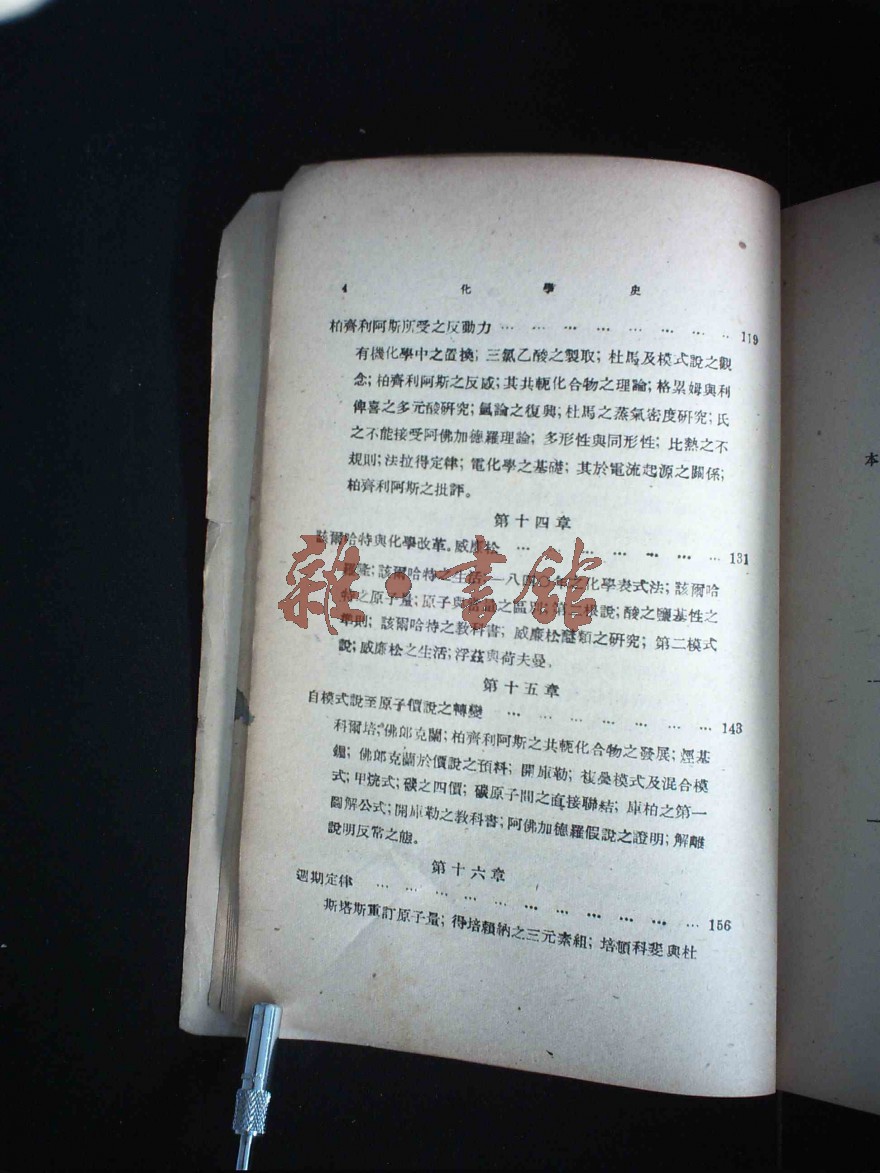 4 化學史
柏齊利阿斯所受之反動力 … … … … … … … … 119
有機化學中之置換；三氯乙酸之製取；杜馬及模式說之觀
念；柏齊利阿斯之反感；其共軛化合物之理論；格累姆與利
俾喜之多元酸研究；氫論之復興；杜馬之蒸氣密度研究；氏
之不能接受阿佛加德羅理論；多形性與同形性；比熱之不
規則；法拉得定律；電化學之基礎；其於電流起源之關係；
柏齊利阿斯之批評。
第十四章
該爾哈特與化學改革。威廉松 … … … … … … … 131
該爾哈特之生活；一八四〇年之化學表式法；該爾哈
特之原子量；原子與當量之區別；第二根說；酸之鹽基性之
準則；該爾哈特之教科書；威廉松醚類之研究；第二模式
說；威廉松之生活；浮茲與荷夫曼。
第十五章
自模式說至原子價說之轉變 … … … … … … … 143
科爾培；佛郎克蘭；柏齊利阿斯之共軛化合物之發展；烴基
；佛郎克蘭於價說之預料；開庫勒；複疊模式及混合模
式；甲烷式；碳之四價；碳原子間之直接聯結；庫柏之第一
圖解公式；開庫勒之教科書；阿佛加德羅假說之證明；解離
說明反常之態。
第十六章
週期定律 … … … … … … … … … … … 156
斯塔斯重訂原子量；得培賴納之三元素組；培頓科斐與杜
本
雜·書館